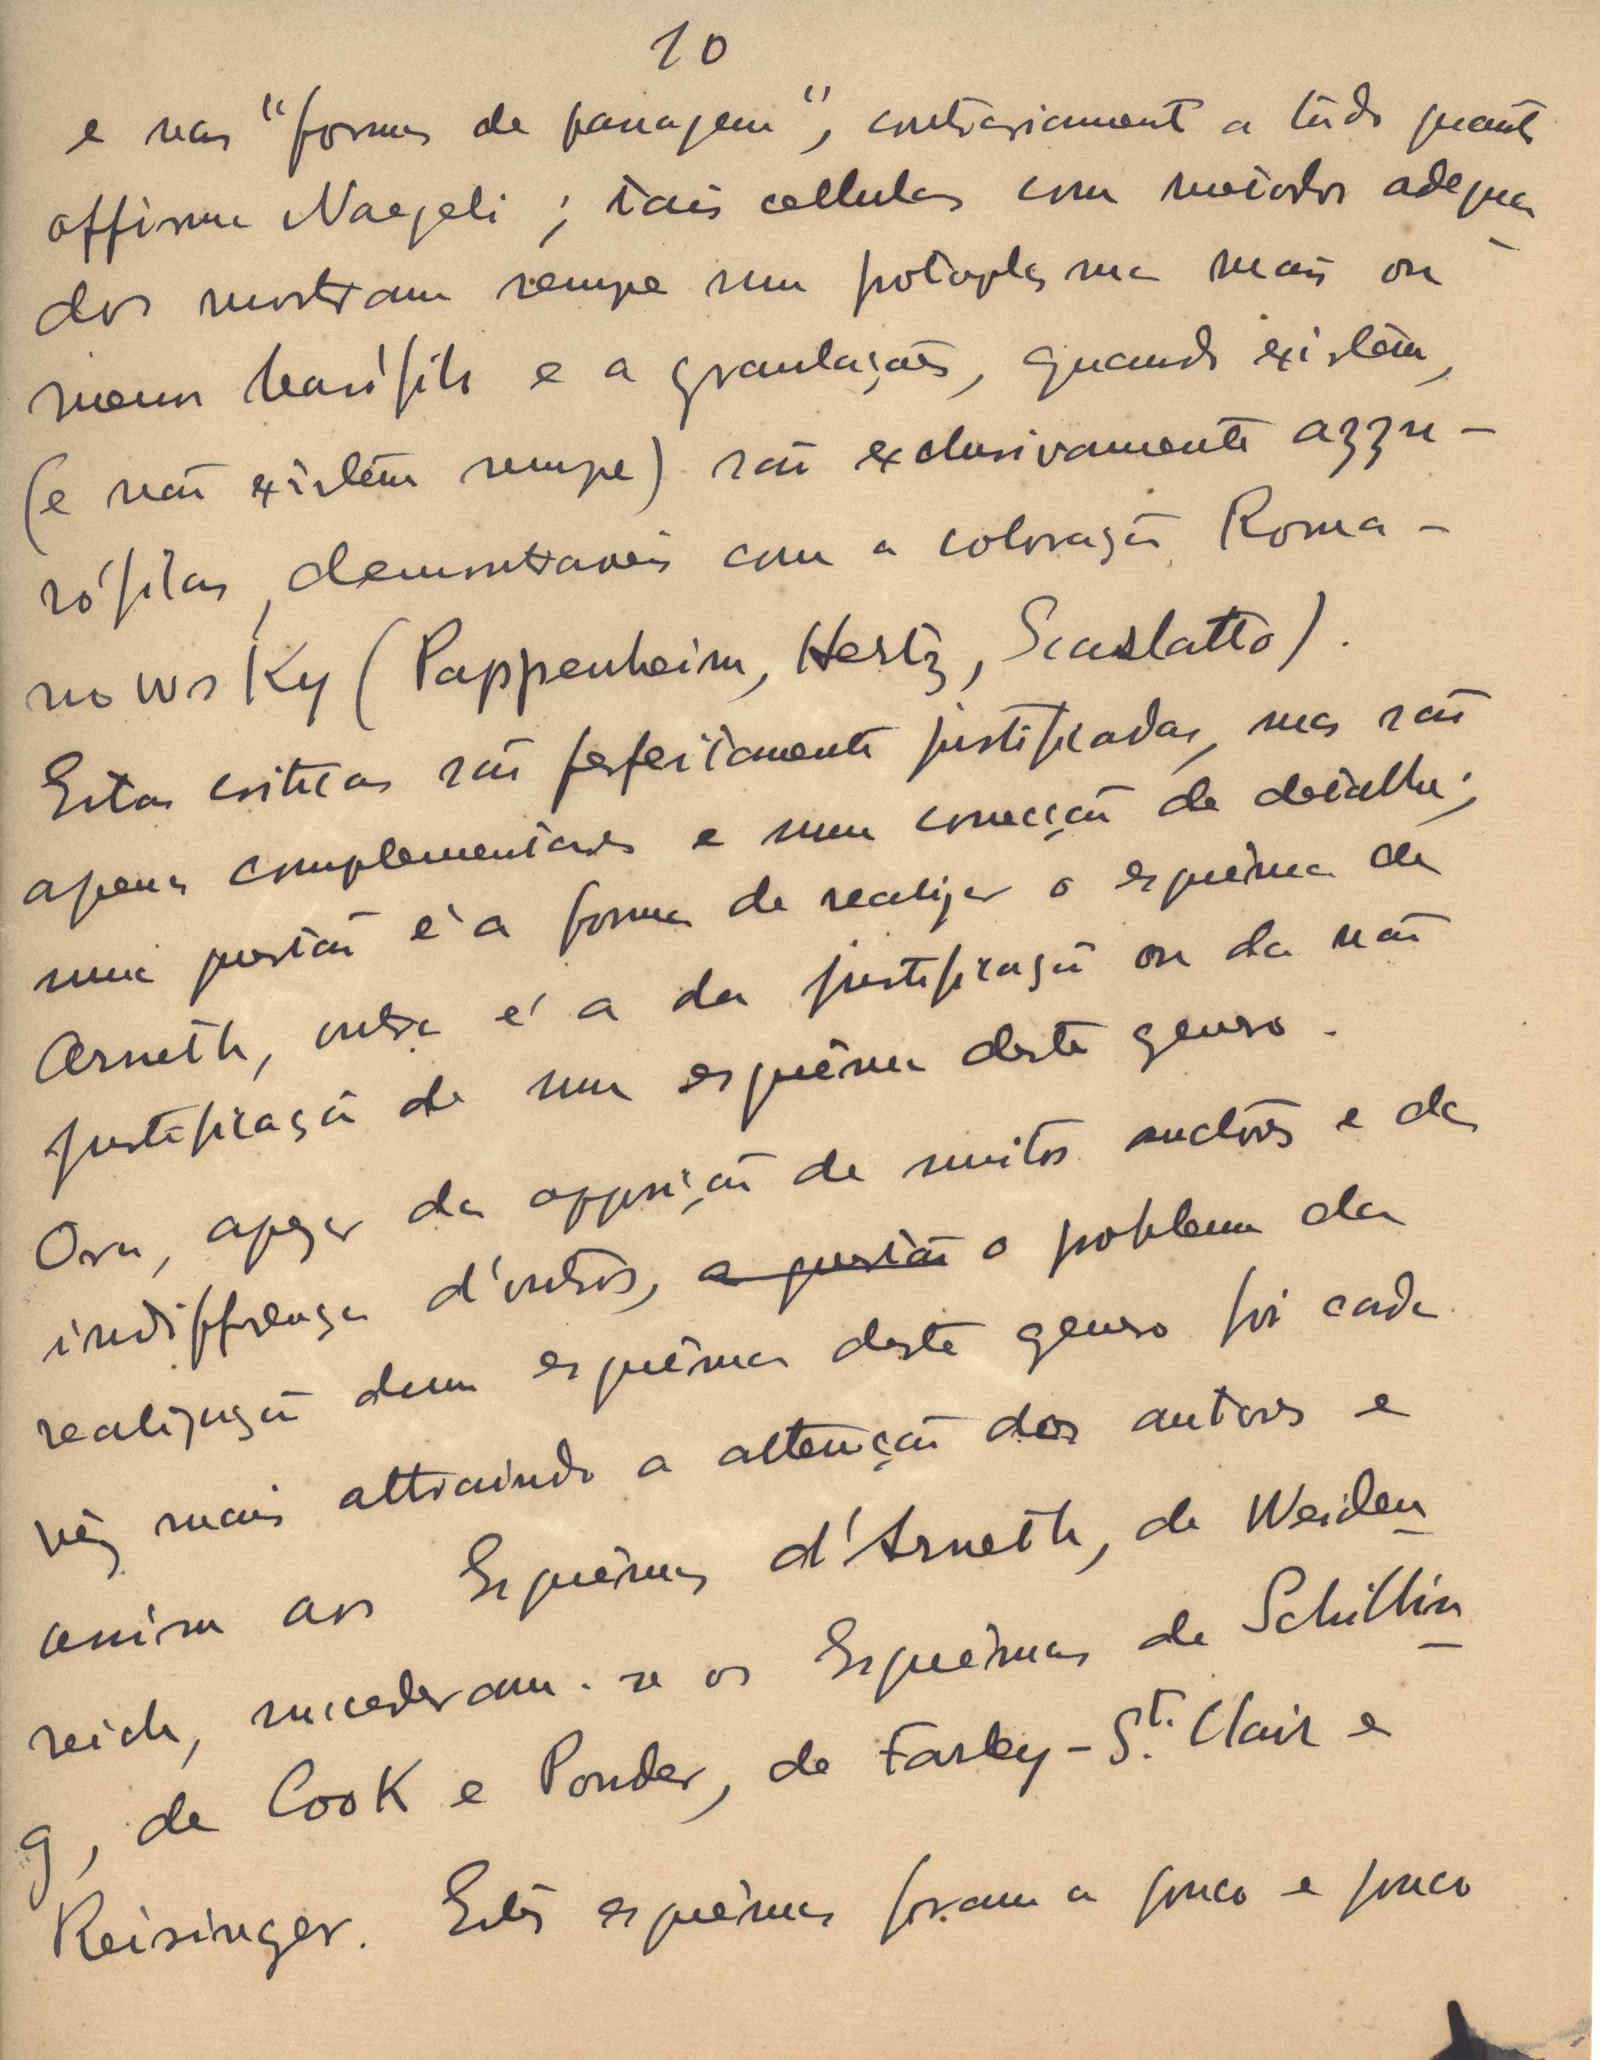 10
e nas "formas de passagem", contrariamente a tudo quanto
affirma Naegeli; tais cellulas com metodos adequa
dos mostram sempre um protoplasma mais ou
menos basófilo e a granulações, quando existêm,
(e não existêm sempe) são exclusivamente azzu-
rófilas, demonstraveis com a coloração Roma-
nowsKy (Pappenheim, Hertz, Scarlatto).
Estas criticas são perfeitamente justificadas, mas são
apenas complementares e uma correcção de detalhe;
uma questão é a forma de realizar o esquêma de
Arneth, outra é a da justificação ou da não
justificação de um esquêma deste genero.
Ora, apezar da opposição de muitos auctores e da
indifferença d'outros, a questão o problema da
realização dum esquêma deste genero foi cada
vêz mais attraindo a attenção dos autores e
assim aos Esquêmas d'Arneth, de Weiden
reich, succederam-se os Esquêmas de Schillin
g, de CooK e Ponder, de Farley-St. Clair e
Reisinger. Estes esquêmas foram a pouco e pouco